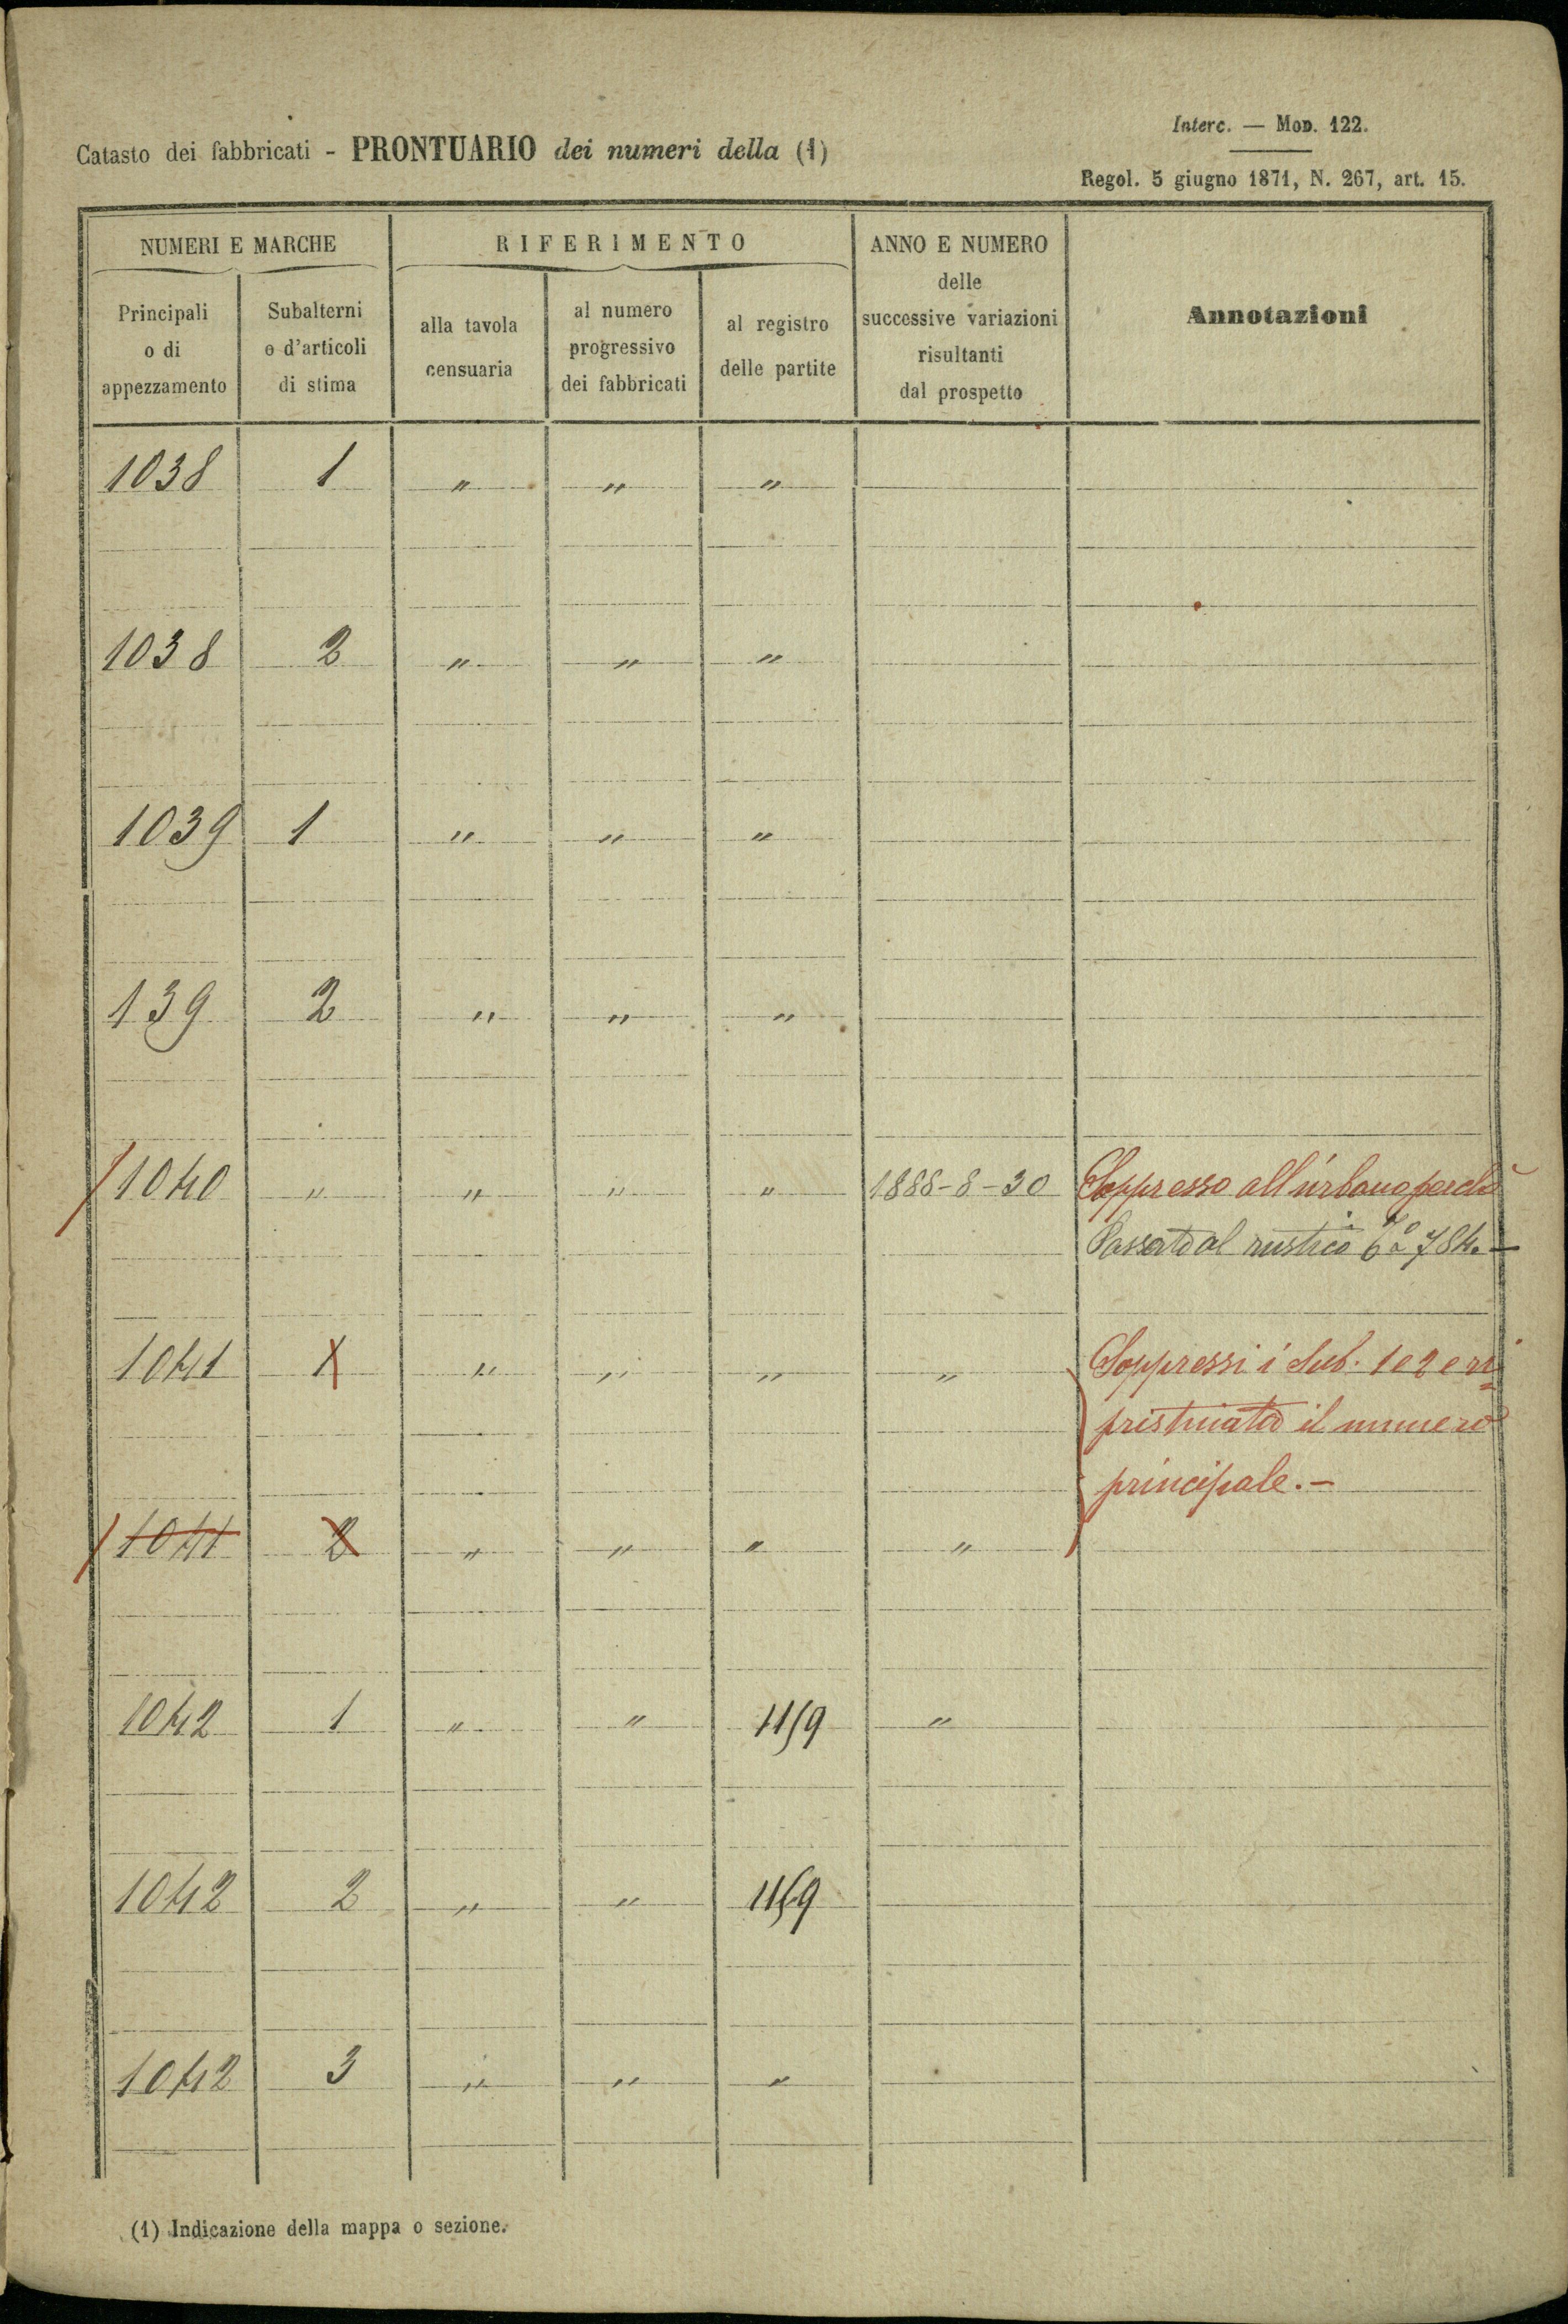 Interc. — Mod. 122.
Catasto dei fabbricati - PRONTUARIO dei numeri della (1)
Regol. 5 giugno 1871, N. 267, art. 15.
NUMERI E MARCHE
RIFERIMENTO
ANNO E NUMERO
delle
successive variazioni
risultanti
dal prospetto
Annotazioni
Principali
o di
appezzamento
Subalterni
o d'articoli
di stima
alla tavola
censuaria
al numero
progressivo
dei fabbricati
al registro
delle partite
1038 1 " " "
1038 2 " " "
1039 1 " " "
139 2 " " "
1040 " " " " 1888-8-30 Soppresso all'urbano perchè
Passato al rustico 784. —
1041 1 " " " " Soppressi i Sub. 1 e 2 e ri=
pristinato il numero
principale. —
1041 2 " " " "
1042 1 " " 1159 "
1042 2 " " 1159
1042 3 " " "
(1) Indicazione della mappa o sezione.